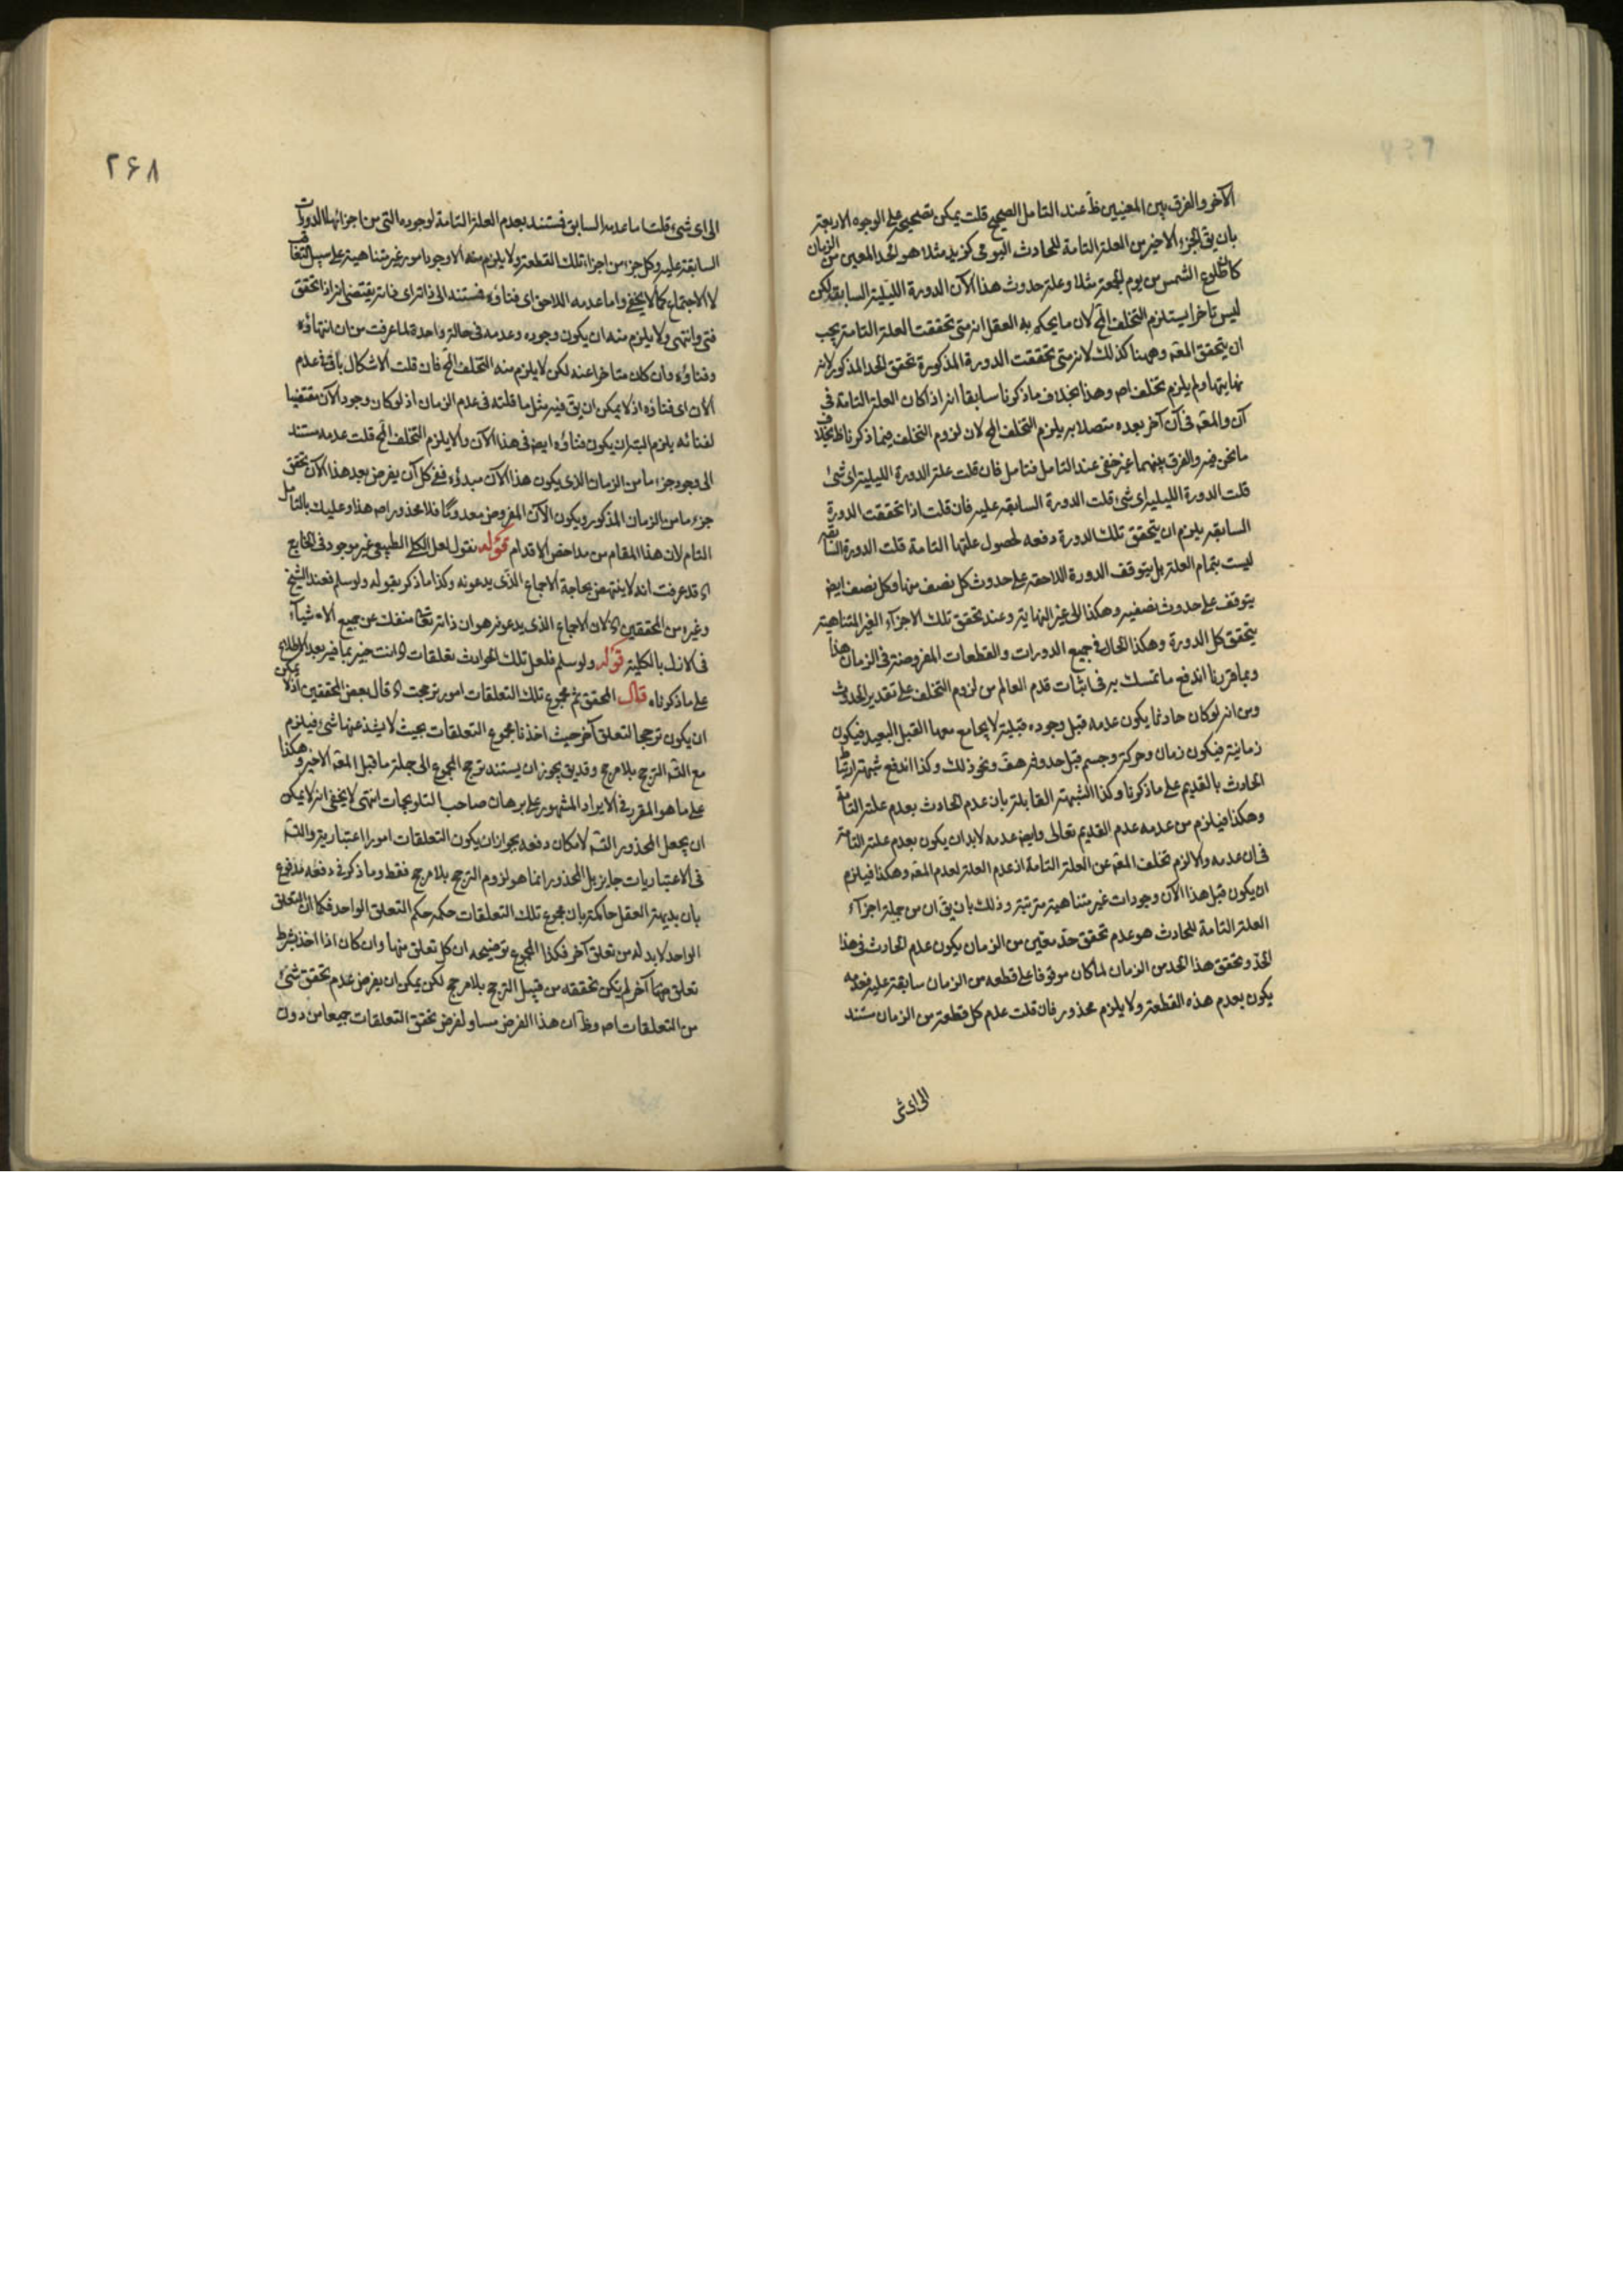 الآخر والفرق بين المعنيين ظ عند التامل الصحيح قلت يمكن تصحيحه على الوجوه الاربعة
بان يق الجزء الاخير من العلة التامة للحادث اليومى كزيد مثلا هو الحد المعين من الزمان
كاطلوع الشمس من يوم الجمعة مثلا وعلة حدوث هذا الآن الدورة الليلية السابقة لكن
ليس تاخرا يستلزم التخلف المح لان ما يحكم به العقل انه متى تحققت العلة التامة يجب
ان يتحقق المعه وههنا كذلك لانه متى تحققت الدورة المذكورة تحقق الحد المذكور لانه
نهايتها ولم يلزم تخلف اصه وهذا بخلاف ما ذكرنا سابقا انه اذا كان العلة التامة فى
آن والمعه فى آن آخر بعده متصلا به يلزم التخلف المح لان لزوم التخلف فيما ذكرنا ظ بخلاف
ما نحن فيه والفرق بينهما غير خفى عند التامل فتامل فان قلت علة الدورة الليلية اى شئ
قلت الدورة الليلية اى شئ قلت الدورة السابقة عليه فان قلت اذا تحققت الدورة
السابقة يلزم ان يتحقق تلك الدورة دفعه لحصول علتها التامة قلت الدورة السابقة
ليست بتمام العلة بل يتوقف الدورة اللاحقة على حدوث كل نصف منها وكل نصف ايض
يتوقف على حدوث نصفيه وهكذا الى غير النهاية وعند تحقق تلك الاجزاء الغير المتناهية
يتحقق كل الدورة وهكذا الحال فى جميع الدورات والقطعات المفروضة فى الزمان هذا
وبما قررنا اندفع ما تمسك به فى اثبات قدم العالم من لزوم التخلف على تقدير الحدوث
ومن انه لو كان حادثا يكون عدمه قبل وجوده قبلية لا يجامع معها القبل البعيد فيكون
زمانية فيكون زمان وحركة وجسم قبل حدوثه هف ونحو ذلك وكذا اندفع شبهة ارتباط
الحادث بالقديم على ما ذكرنا وكذا الشبهة القابلة بان عدم الحادث بعدم علته التامة
وهكذا فيلزم من عدمه عدم القديم تعالى وايض عدمه لابد ان يكون بعدم علته التامة
فى ان عدمه والا لزم تخلف المعه عن العلة التامة اذ عدم العلة لعدم المعه وهكذا فيلزم
ان يكون قبل هذا الآن وجودات غير متناهية مترتبة وذلك بان يق ان من جملة اجزاء
العلة التامة للحادث هو عدم تحقق حد معين من الزمان يكون عدم الحادث فى هذا
الحد وتحقق هذا الحد من الزمان لما كان موقوفا على قطعه من الزمان سابقة عليه فعدمه
يكون بعدم هذه القطعة ولا يلزم محذور فان قلت عدم كل قطعة من الزمان مستند
الى اى شئ
۲۶۸
الى اى شئ قلت اما عدمه السابق فمستند بعدم العلة التامة لوجوده التى من اجزائها الدورات
السابقة عليه وكل جزء من اجزاء تلك القطعة ولا يلزم منه الا وجود امور غير متناهية على سبيل التعاقب
لا الاجتماع كما لا يخفى واما عدمه اللاحق اى فناؤه فمستند الى ذاته اى ذاته يقتضى انه اذا تحقق
فنى وانتهى ولا يلزم منه ان يكون وجوده وعدمه فى حالة واحدة لما عرفت من ان انتهاؤه
وفناؤه وان كان متاخرا عنه لكن لا يلزم منه التخلف المح فان قلت الاشكال باق فى عدم
الآن اى فناؤه اذ لا يمكن ان يق فيه مثل ما قلته فى عدم الزمان اذ لو كان وجود الآن مقتضيا
لفنائه يلزم البتة ان يكون فناؤه ايض فى هذا الآن والا يلزم التخلف المح قلت عدمه مستند
الى وجود جزء ما من الزمان الذى يكون هذا الآن مبدؤه ففى كل آن يفرض بعد هذا الآن تحقق
جزء ما من الزمان المذكور ويكون الآن المفروض معدوما فلا محذور اصه هذا وعليك بالتامل
التام لان هذا المقام من مداحض الاقدام قوله نقول لعل الكلى الطبيعى غير موجود فى الخارج
اه قد عرفت انه لا ينتهض بحاجة الاجماع الذى يدعونه وكذا ما ذكر بقوله ولو سلم فعند الشيخ
وغيره من المحققين اه لان الاجماع الذى يدعونه هو ان ذاته تعالى منفك عن جميع الاشياء
فى الازل بالكلية قوله ولو سلم فلعل تلك الحوادث تعلقات اه انت خبير بما فيه بعد الاطلاع
على ما ذكرناه قال المحقق ثم مجموع تلك التعلقات امور ترجحت اه قال بعض المحققين اذ لا يمكن
ان يكون ترجحا لتعلق آخر حيث اخذنا مجموع التعلقات بحيث لا يشذ عنها شئ فيلزم
مع التسه الترجح بلا مرجح وقد يق يجوز ان يستند ترجح المجموع الى جملة ما قبل المعه الاخير وهكذا
على ما هو المقرر فى الايراد المشهور على برهان صاحب التلويحات انتهى لا يخفى انه لا يمكن
ان يجعل المحذور التسه لامكان دفعه بجواز ان يكون التعلقات امورا اعتبارية والتسه
فى الاعتباريات جايز بل المحذور انما هو لزوم الترجح بلا مرجح فقط وما ذكر فى دفعه مدفوع
بان بديهة العقل حاكمة بان مجموع تلك التعلقات حكمه حكم التعلق الواحد فكما ان التعلق
الواحد لابد له من تعلق آخر فكذا المجموع توضيحه ان كل تعلق منها وان كان اذا اخذ بشرط
تعلق منها آخر لم يكن تحققه من قبيل الترجح بلا مرجح لكن يمكن ان يفرض عدم تحقق شئ
من التعلقات اصه وظ ان هذا الفرض مساو لفرض تحقق التعلقات جميعا من دون